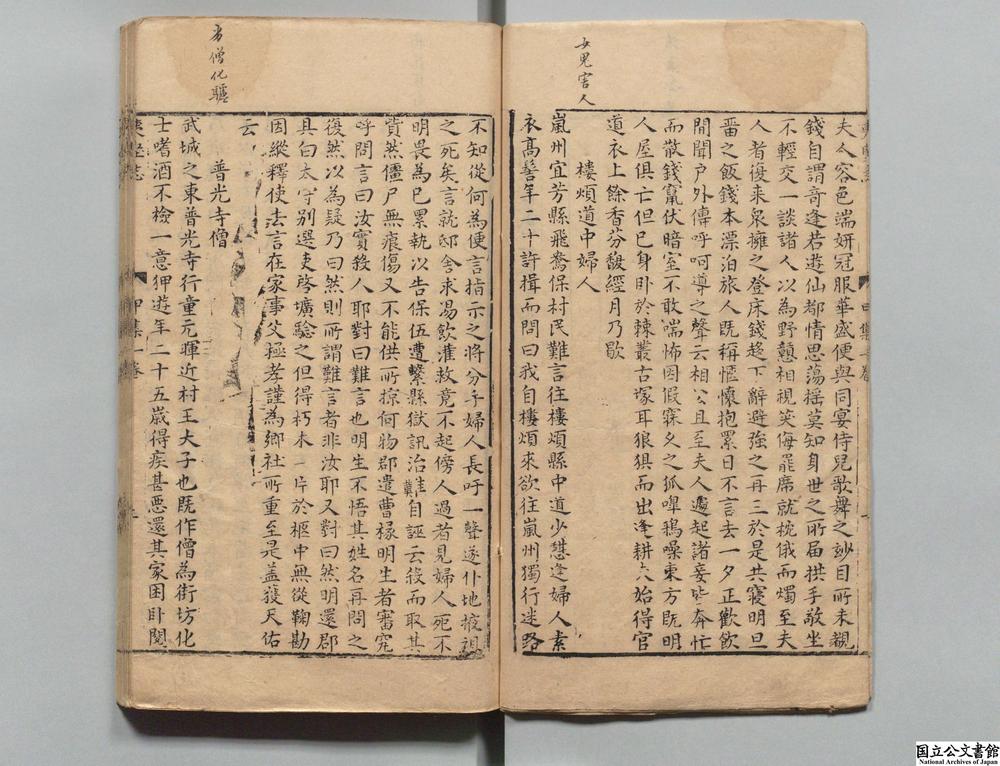 女鬼害人
夫人容色端妍冠服華盛便與同宴侍兒歌舞之妙目所未覩
錢自謂奇逢若遊仙都情思蕩揺莫知身世之所届拱手敬坐
不輕交一談諸人以為野戇相視笑侮罷席就枕俄而燭至夫
人者復来衆擁之登床錢趍下辭避強之再三於是共寢明旦
畱之飯錢本漂泊旅人既稱愜懷抱累日不言去一夕正歡飲
間聞户外傳呼呵導之聲云相公且至夫人遽起諸妾皆奔忙
而散錢竄伏暗室不敢喘怖因假寐久之狐嘷鵶噪東方既明
人屋俱亡但已身卧於棘叢古塚耳狼狽而出逢耕夫始得官
道衣上餘香芬馥經月乃歇
樓煩道中婦人
嵐州宜芳縣飛鳶保村民難言往樓煩縣中道少憇逢婦人素
衣髙髻年二十許揖而問曰我自樓煩來欲往嵐州獨行迷路
不知從何為便言指示之將分手婦人長吁一聲遂仆地掖視
之死矣言就邸舍求湯飲灌救竟不起傍人過者見婦人死不
明畏為已累執以告保伍遭繫縣獄訊治難自誣云殺而取其
貲然僵尸無痕傷又不能供所掠何物郡遣曹椽明生者審究
呼問言曰汝實殺人耶對曰難言也明生不悟其姓名再問之
復然以為疑乃曰然則所謂難言者非汝耶又對曰然明還郡
具白太守别選吏啓壙驗之但得朽木一片於柩中無從鞠勘
因縱釋使去言在家事父極孝謹為鄉社所重至是盖獲天佑
云
普光寺僧
武城之東普光寺行童元暉近村王大子也既作僧為街坊化
士嗜酒不檢一意狎遊年二十五歲得疾甚惡還其家困卧閱
夷堅志
甲集一卷
僧化驢
国立公文書館
National Archives of Japan